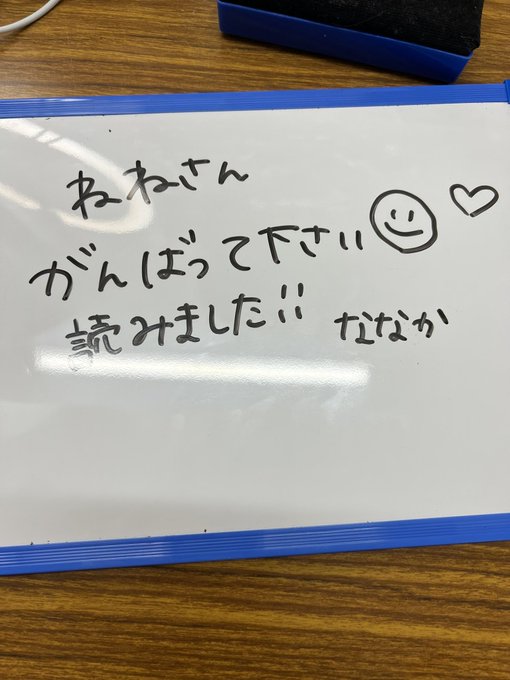 ねねさん
がんばって下さい
読みました!! ななか